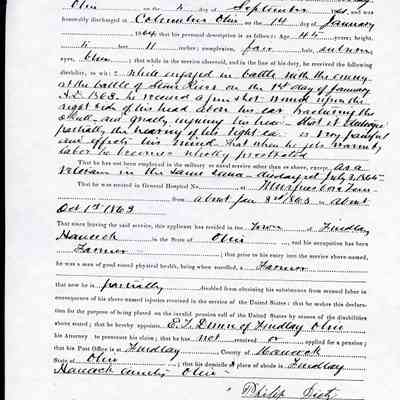 Ohio on the 4 day of September 1861, and was
honorably discharged at Columbus Ohio on the 14 day of January
1864 that his personal description is as follows: Age 45 years; height,
5 feet 11 inches; complexion, fair hair, auburn
eyes, blue; that while in the service aforesaid, and in the line of duty, he received the following
disability, to wit: while engaged in battle with the enemy
at the battle of Stone River on the 1st day of January
A.D. 1863. he received a gun shot wound upon the
right side of his head above his ear fracturing the
skull and greatly injuring his head that it
partially the hearing of his right ear is very painful
and effects his mind that when he gets warm by
labor he becomes wholly prostrated
That he has not been employed in the military or naval service other than as above, except as a
Veteran in the same discharged July 2, 1865
That he was treated in General Hospital No. at Murfreesboro Tenn
from about Jan 3rd 1863 to about
Oct 1st 1863
That since leaving the said service, this applicant has resided in the Town of Findlay
Hancock in the State of Ohio, and his occupation has been
Farmer; that prior to his entry into the service above named,
he was a man of good sound physical health, being when enrolled, a Farmer
that now he is partially disabled from obtaining his subsistence from manual labor in
consequence of his above named injuries received in the service of the United States; that he makes this declara-
tion for the purpose of being placed on the invalid pension roll of the United States by reason of the disabilities
above stated; that he hereby appoints E. T. Dunn of Findlay Ohio
his Attorney to prosecute his claim; that he has not received or applied for a pension;
that his Post Office is at Findlay County of Hancock
State of Ohio; that his domicile or place of abode is Findlay
Hancock County Ohio
Philip Dietz